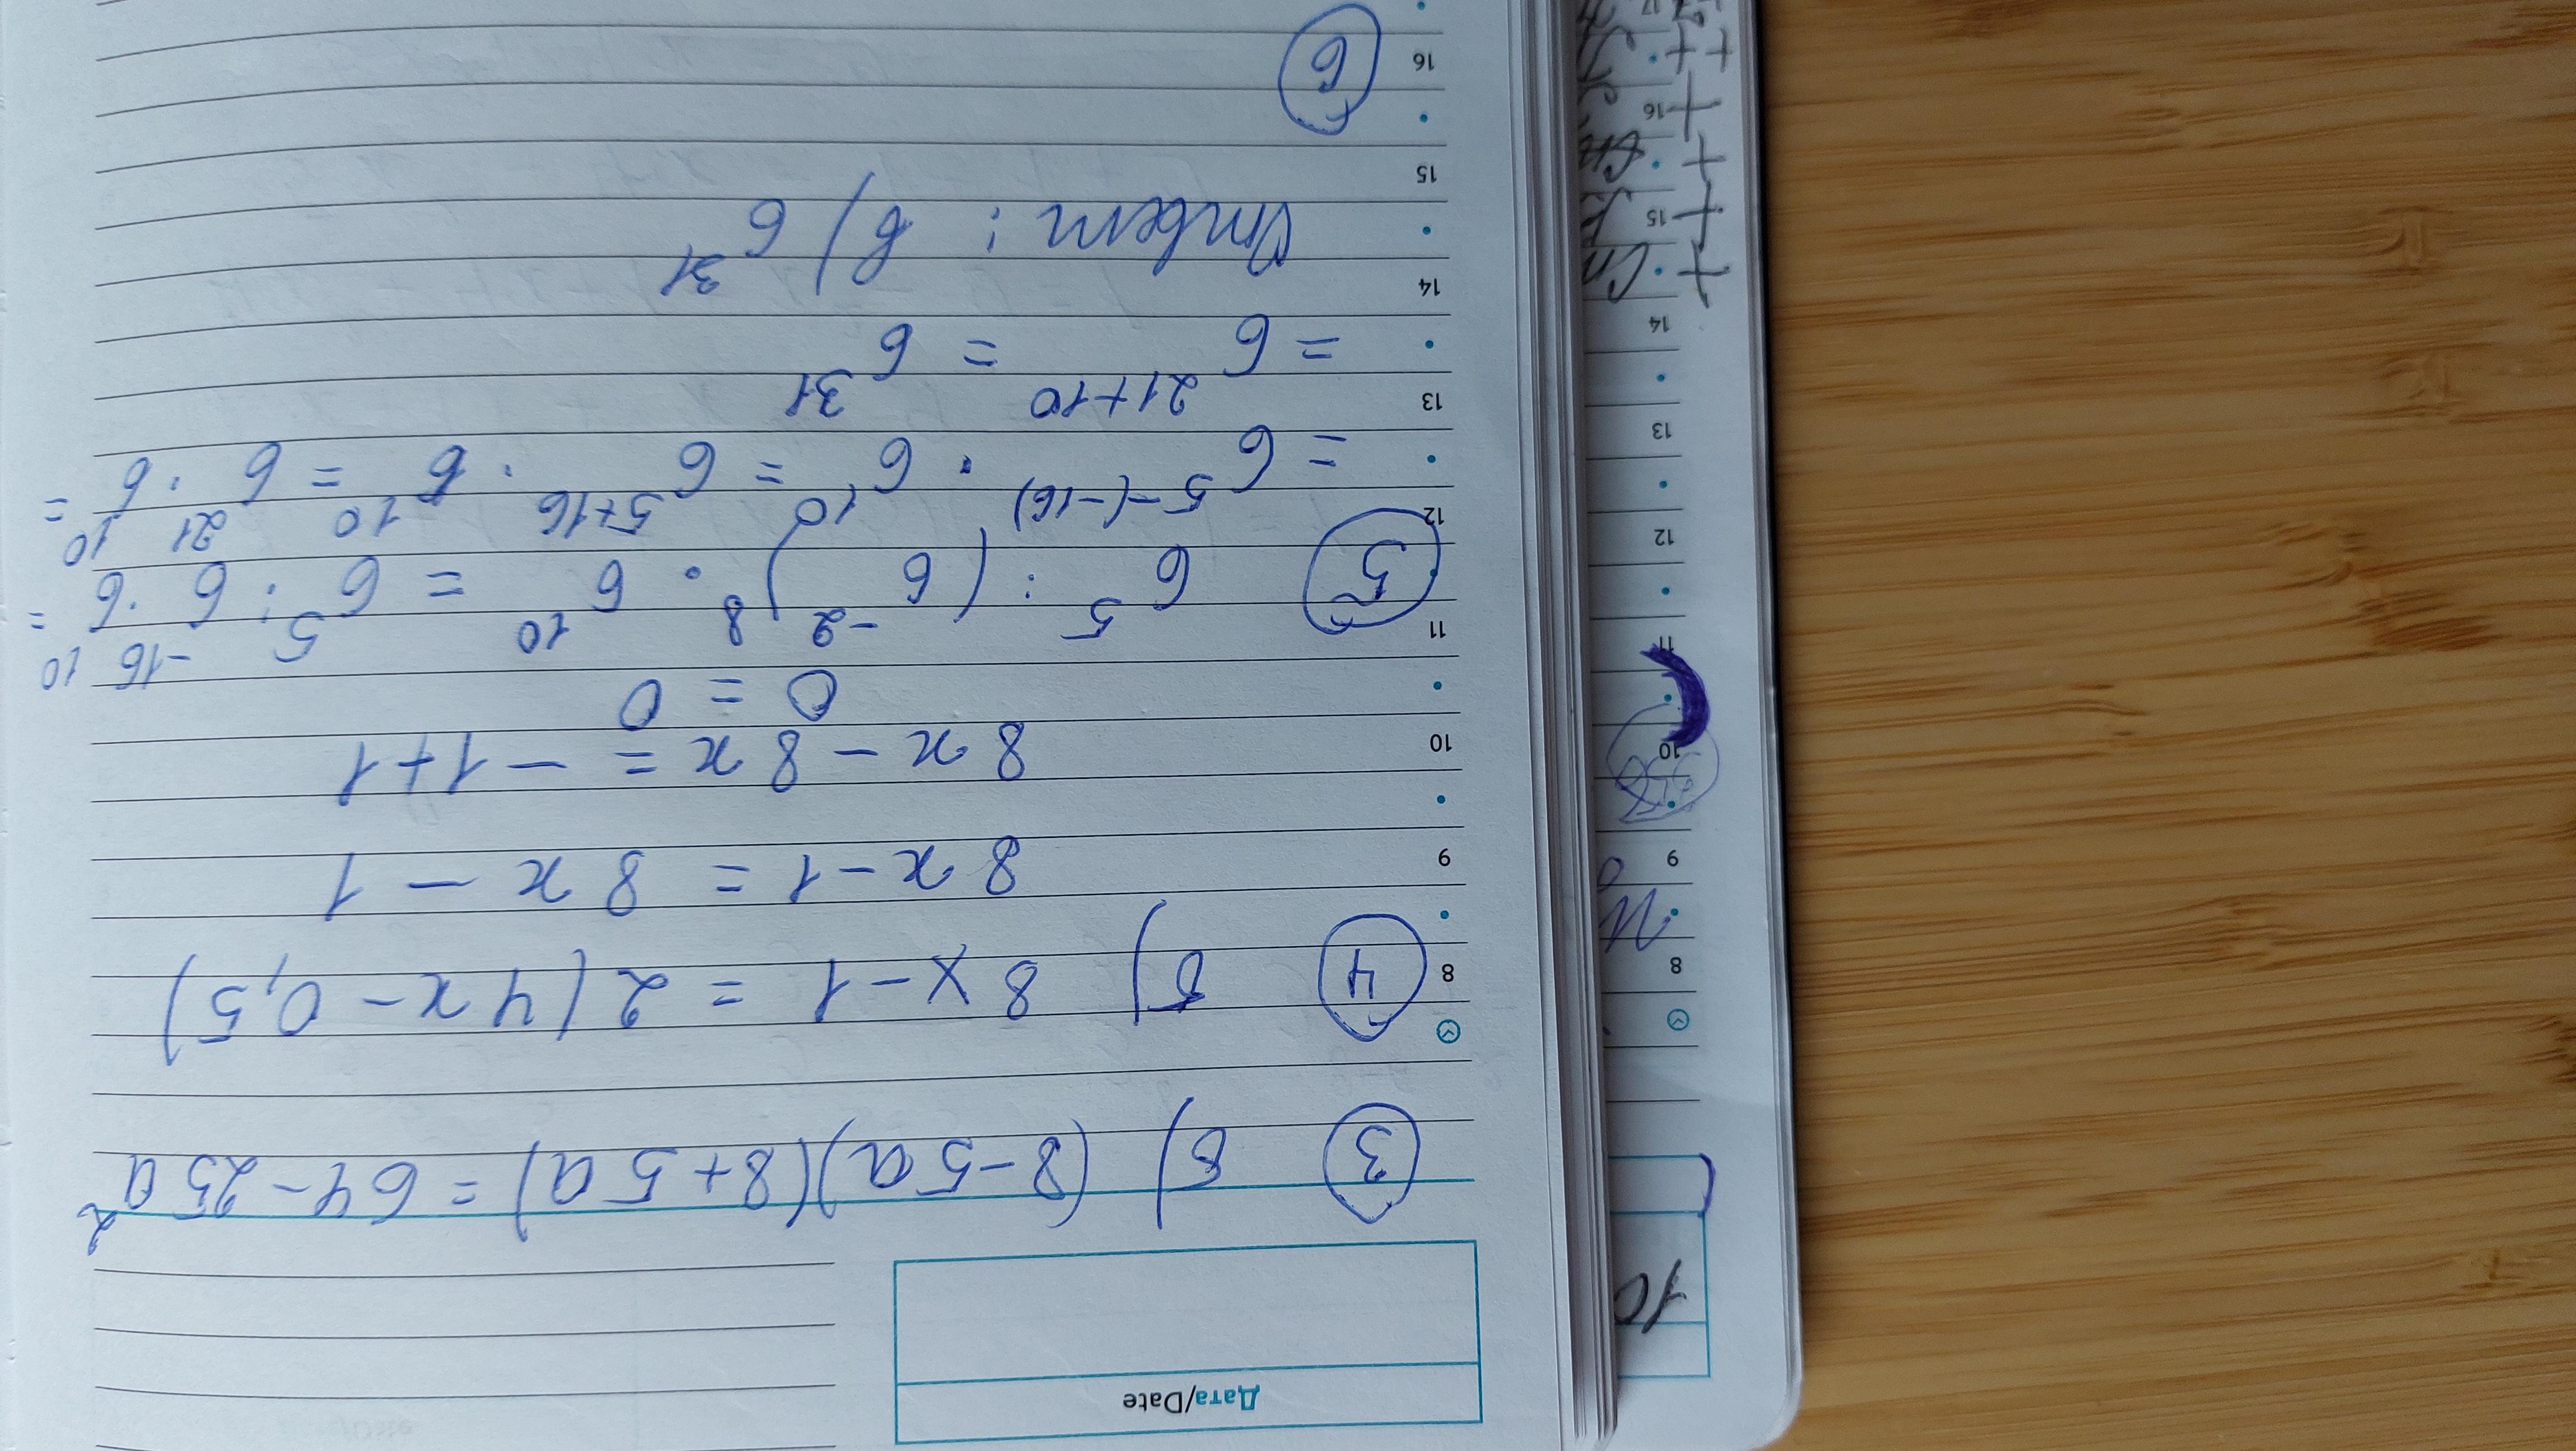 Дата/Date
③ б) (8-5a)(8+5a) = 64-25a²
④ б) 8x-1 = 2(4x-0,5)
8x-1 = 8x-1
8x-8x = -1+1
0 = 0
⑤ 6⁵ : (6⁻²)⁸ · 6¹⁰ = 6⁵ : 6⁻¹⁶ · 6¹⁰ =
= 6⁵⁻⁽⁻¹⁶⁾ · 6¹⁰ = 6⁵⁺¹⁶ · 6¹⁰ = 6²¹ · 6¹⁰ =
= 6²¹⁺¹⁰ = 6³¹
Ответ: в) 6³¹
⑥
8
9
10
11
12
13
14
15
16
10
8
9
10
11
12
13
14
15
16
17